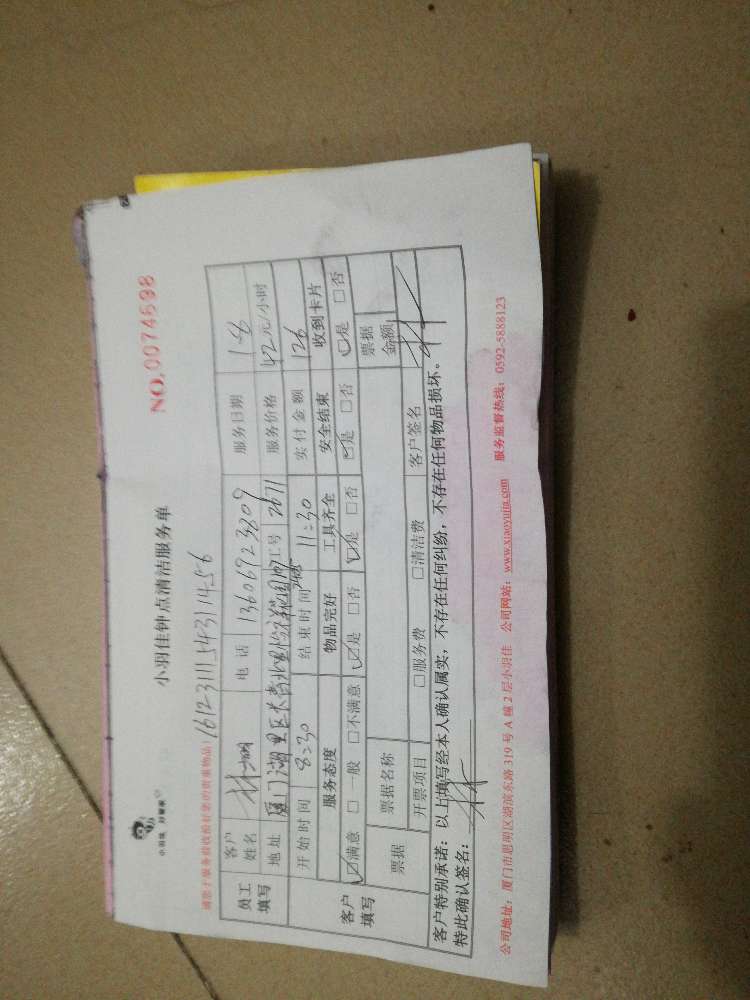 小羽佳 好管家
小羽佳钟点清洁服务单
NO.0074598
请您于服务前收拾好您的贵重物品!
16123111_543114_56
员工填写 客户姓名 林 电话 13606923809 服务日期 1-8
地址 厦门湖里区 工号 2611 服务价格 42元/小时
开始时间 8:30 结束时间 11:30 实付金额 126
客户填写 服务态度 物品完好 工具齐全 安全结束 收到卡片
☑满意 □一般 □不满意 ☑是 □否 ☑是 □否 ☑是 □否 ☑是 □否
票据 票据名称 票据金额
开票项目 □服务费 □清洁费 客户签名
客户特别承诺:以上填写经本人确认属实,不存在任何纠纷,不存在任何物品损坏。
特此确认签名:
公司地址:厦门市思明区湖滨东路319号A幢2层小羽佳 公司网站:www.xiaoyujia.com 服务监督热线:0592-5888123